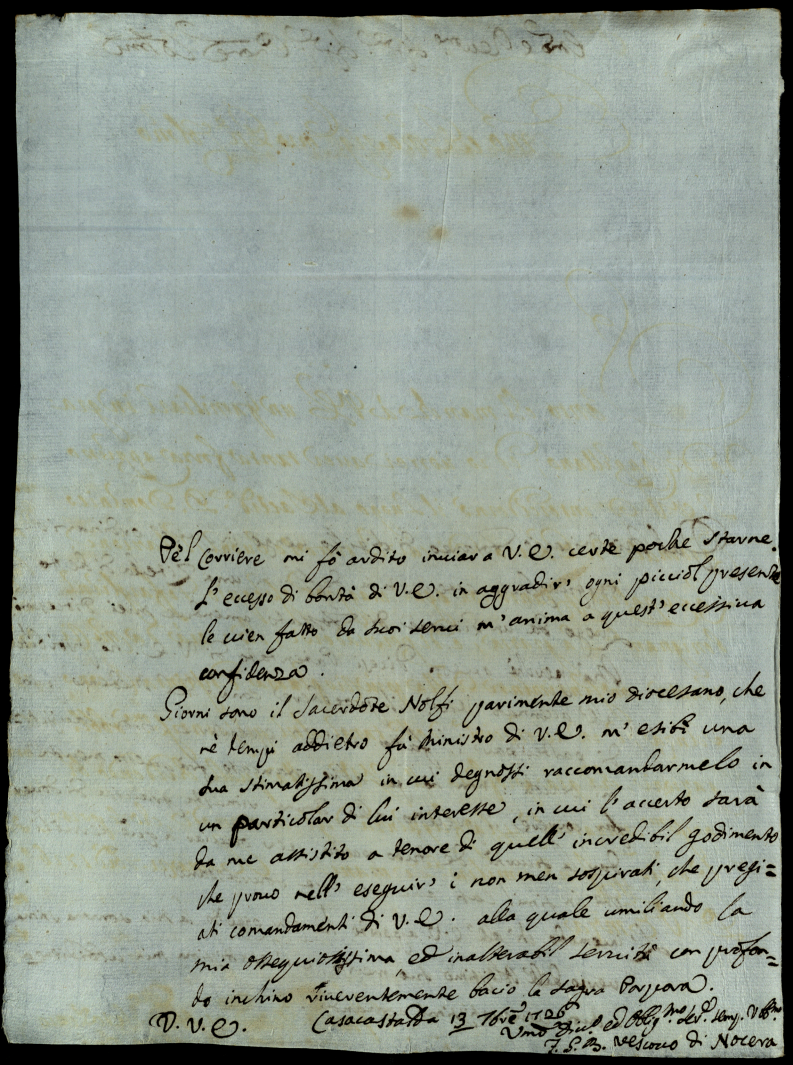 Pel Corriere mi fò ardito inviar a V. E. certe poche starne.
L'eccesso di bontà di V. E. in aggradir' ogni picciol presente
le vien fatto da suoi servi m'anima a quest' eccessiva
confidenza.
Giorni sono il Sacerdote Nolfi parimente mio diocesano, che
nè tempi addietro fù Ministro di V. E. m' esibì una
sua stimatissima in cui degnossi raccomandarmelo in
un particolar di lui interesse, in cui l'accerto sarà
da me assistito a tenore di quell' incredibil godimento
che provo nell' eseguir' i non men sospirati, che pregi=
ati comandamenti di V. E. alla quale umiliando la
mia ossequiosissima, ed inalterabil servitù con profon=
do inchino riverentemente bacio la sagra Porpora.
D. V. E. Casacastalda 13 7bre 1726
Umo Divo ed Obligmo Serre
F. S. B. Vescovo di Nocera